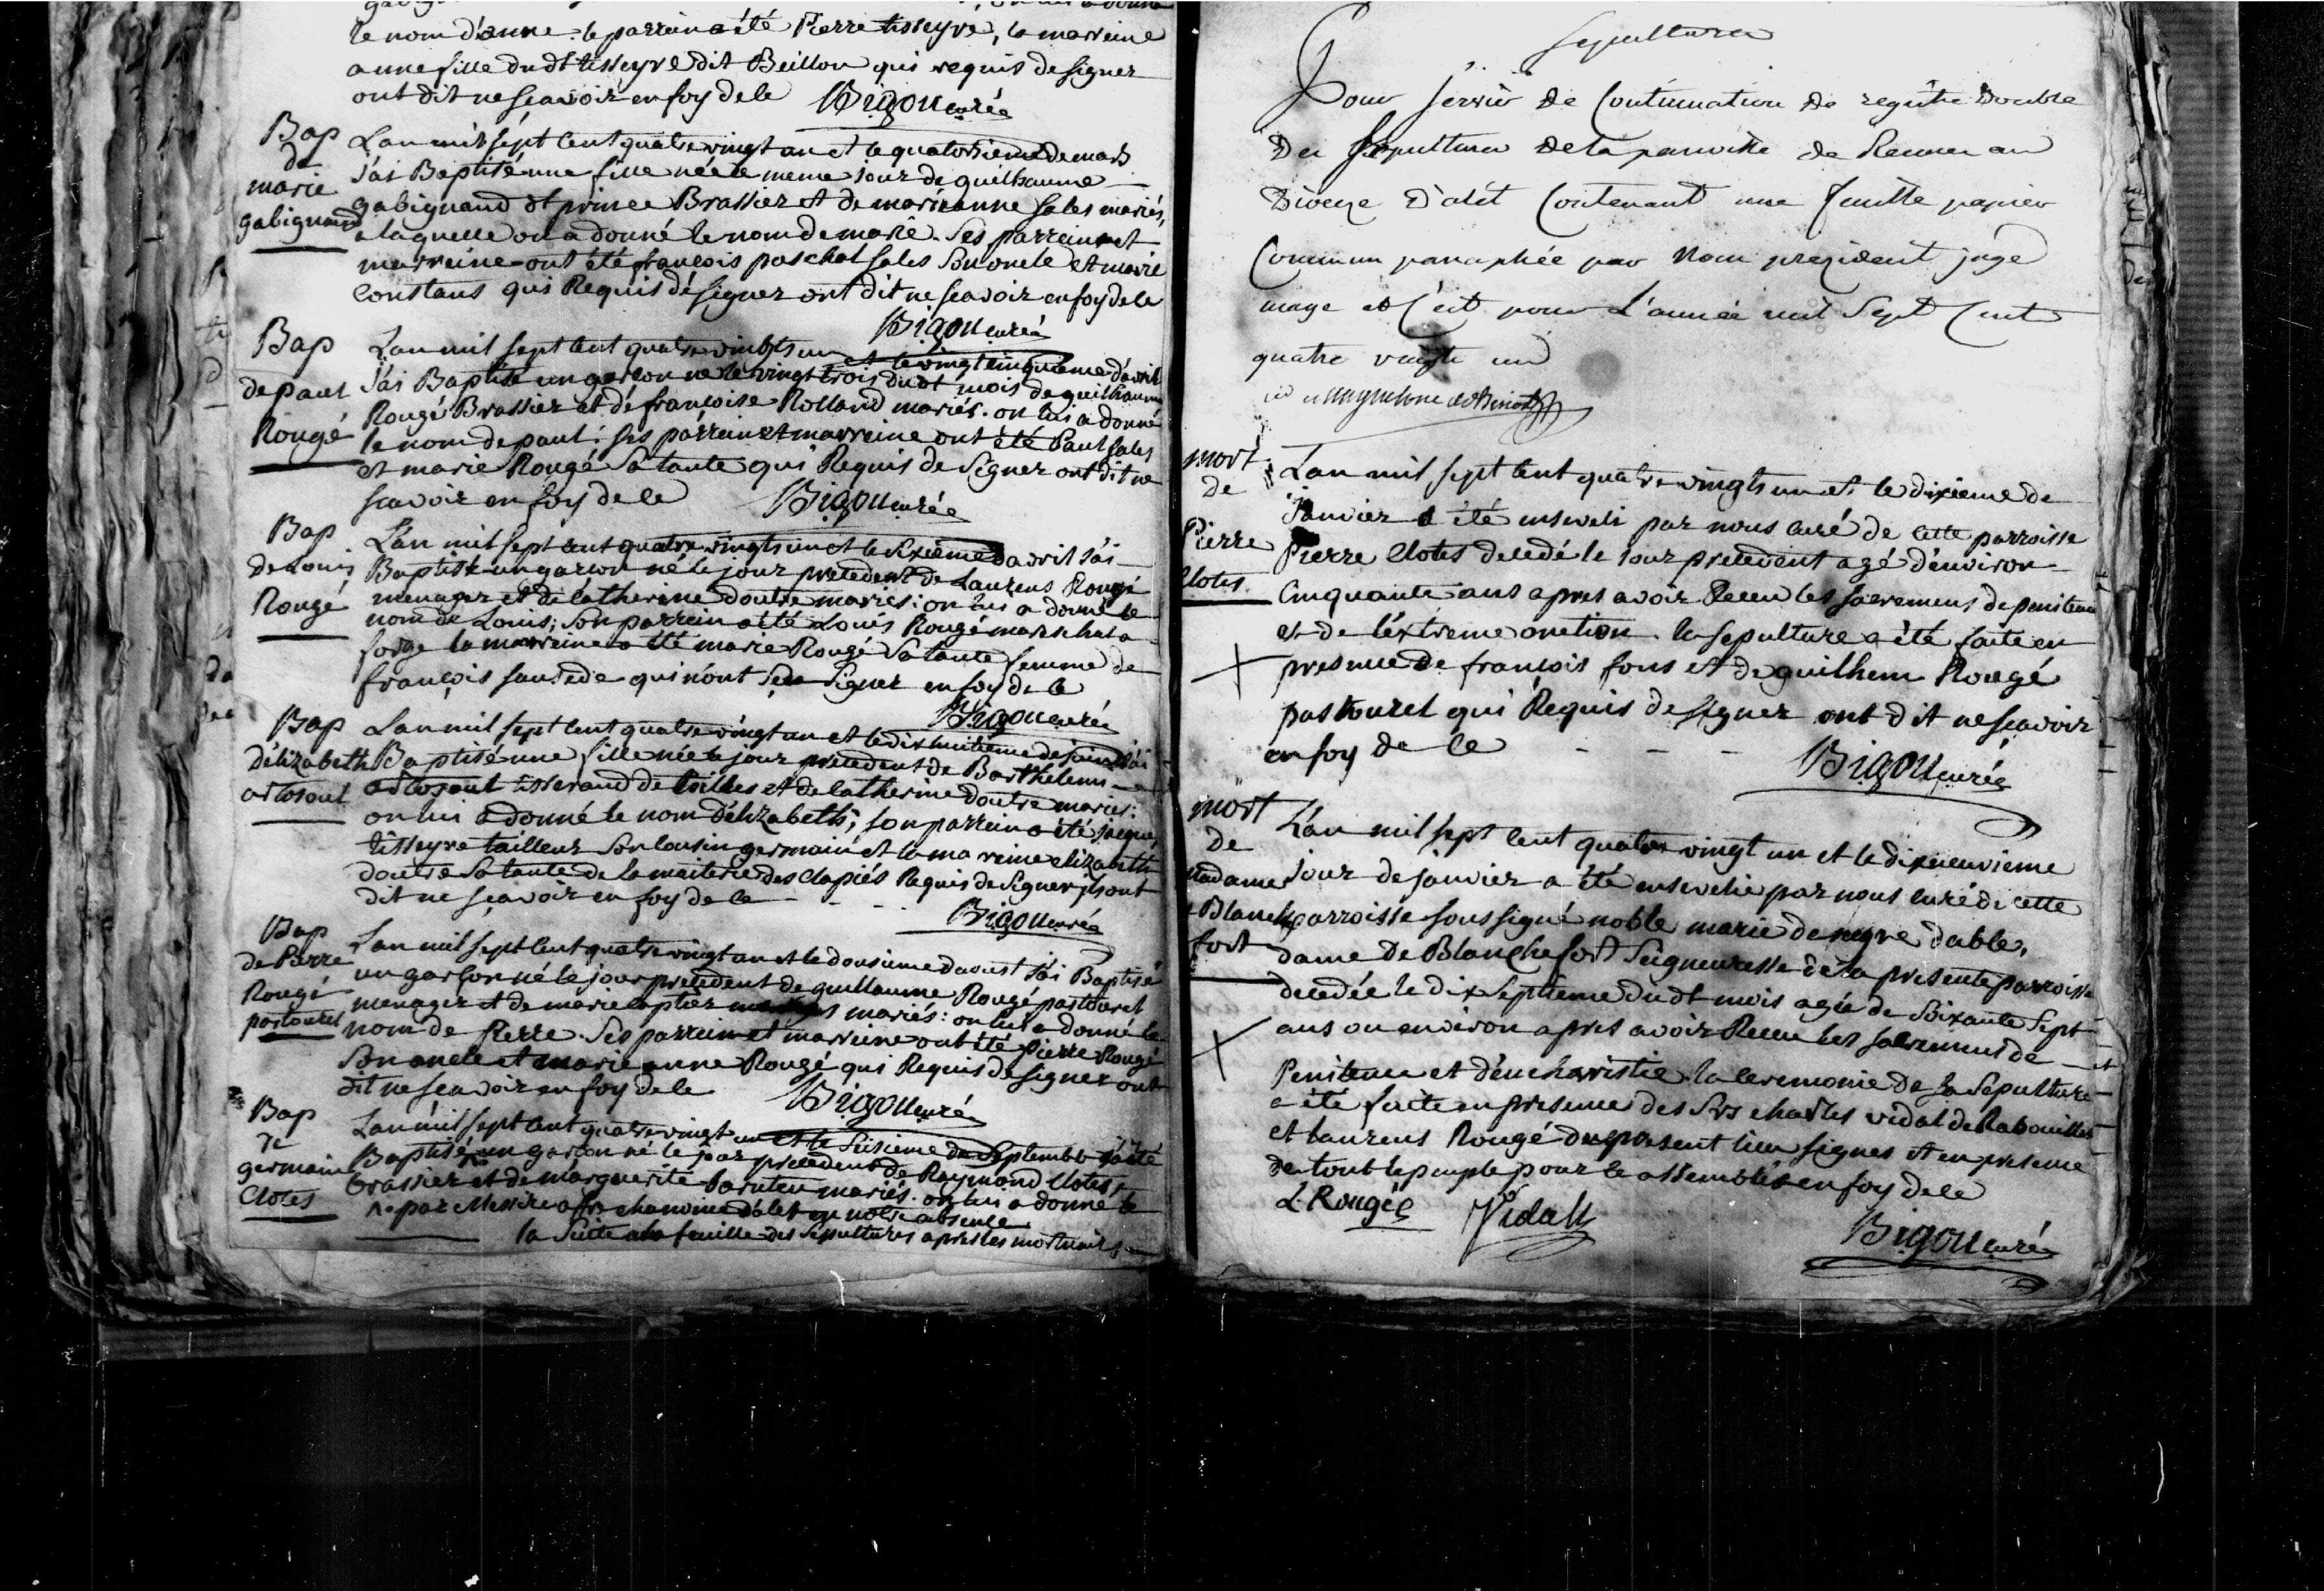 le nom d'anne. le parrein a été Pierre tisseyre, la marreine
anne fille dudt tisseyre dit Beillou qui requis de signer
ont dit ne scavoir en foy de ce Bigou curé
Bap
de
marie
gabignaud
Lan mil sept cent quatre vingt un et le quatorsieme de mars
j'ai Baptisé une fille née le meme jour de guilhaume
gabignaud dt prince Brassier et de marianne sales mariés,
a laquelle on a donné le nom de marie. Ses parrein et
marreine ont été françois paschal sales son oncle et marie
constans qui Requis de signer ont dit ne scavoir en foy de ce
Bigou curé
Bap
de paul
Rougé
Lan mil sept cent quatre vingts un et le vingt cinquieme d'avril
j'ai Baptisé un garcon né le vingt trois dudt mois de guilhaume
Rougé Brassier et de françoise Rolland mariés. on lui a donné
le nom de paul: ses parrein et marreine ont été Paul sales
et marie Rougé sa tante qui Requis de signer ont dit ne
scavoir en foy de ce Bigou curé
Bap
de Louis
Rougé
L'an mil sept cent quatre vingts un et le sixieme d'avril j'ai
Baptisé un garcon né le jour precedent de Laurens Rougé
menager et de catherine doutre mariés: on lui a donné le
nom de Louis; son parrein a été Louis Rougé mareschal a
forge la marreine a été marie Rougé sa tante femme de
françois saurede qui n'ont seu signer en foy de ce
Bigou curé
Bap
d'élizabeth
artosoul
Lan mil sept cent quatre vingt un et le dix huitieme de juin j'ai
Baptisé une fille née le jour precedent de Barthelemi
artosoul tisserand de toilles et de catherine doutre mariés:
on lui a donné le nom d'élizabeth; son parrein a été jacques
tisseyre tailleur son cousin germain et la marreine elizabeth
doutre sa tante de la maiterie des clapiés Requis de signer ils ont
dit ne scavoir en foy de ce - - - Bigou curé
Bap
de Pierre
Rougé
pastouret
Lan mil sept cent quatre vingt un et le dousieme d'aoust j'ai Baptisé
un garçon né le jour precedent de guillaume Rougé pastouret
menager et de marie captier mariés: on lui a donné le
nom de Pierre. Ses parrein et marreine ont été Pierre Rougé
son oncle et marie anne Rougé qui Requis de signer ont
dit ne scavoir en foy de ce Bigou curé
Bap
de
germain
Clotes
Lan mil sept cent quatre vingt un et le seisieme de septembre j'a été
Baptisé un garcon né le jour precedent de Raymond Clotes,
brassier et de marguerite mariés. on lui a donné le
par Messire chanoine d'alet en notre absence
la suite a la feuille des sepultures apres les mortuaires
Sepultures
Pour servir de Continuation de registre double
Des Sepultures de la paroisse de Rennes au
Diocese D'alet Contenant une feuille papier
Commun paraphée par Nous president juge
mage et C'est pour L'année mil Sept Cent
quatre vingt un
mort
de
Pierre
Clotes
Lan mil sept cent quatre vingts un et le dixieme de
janvier a été enseveli par nous curé de cette parroisse
Pierre Clotes decedé le jour precedent agé d'environ
Cinquante ans apres avoir Receu les sacremens de penitence
et de l'extreme onction. la sepulture a été faite en
presence de françois fons et de guilhem Rougé
pastouret qui Requis de signer ont dit ne scavoir
en foy de ce - - - Bigou curé
mort
de
madame
Blanchefort
L'an mil sept cent quatre vingt un et le dixneuvieme
jour de janvier a été ensevelie par nous curé de cette
parroisse soussigné noble marie de negre dables,
dame de Blanchefort Seigneuresse de la presente parroisse
decedée le dix septieme dudt mois agée de soixante sept
ans ou environ apres avoir Receu les sacremens de
Penitence et d'eucharistie. la ceremonie de sa sepulture
a été faite en presence des Srs charles vidal de Rabouillet
et laurens Rougé du present lieu signés et en presence
de tout le peuple pour ce assemblé en foy de ce
L Rougé Vidal
Bigou curé